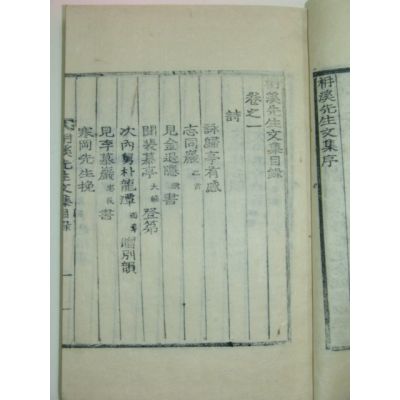 枏溪先生文集序
枏溪先生文集目錄
卷之一
詩
詠歸亭有感
志同巖 二首
見金退隱 書
聞裴慕亭 大維 登第
次內舅朴龍潭 而章 贈別韻
見李慕巖 書
寒岡先生挽
枏溪先生文集目錄 一